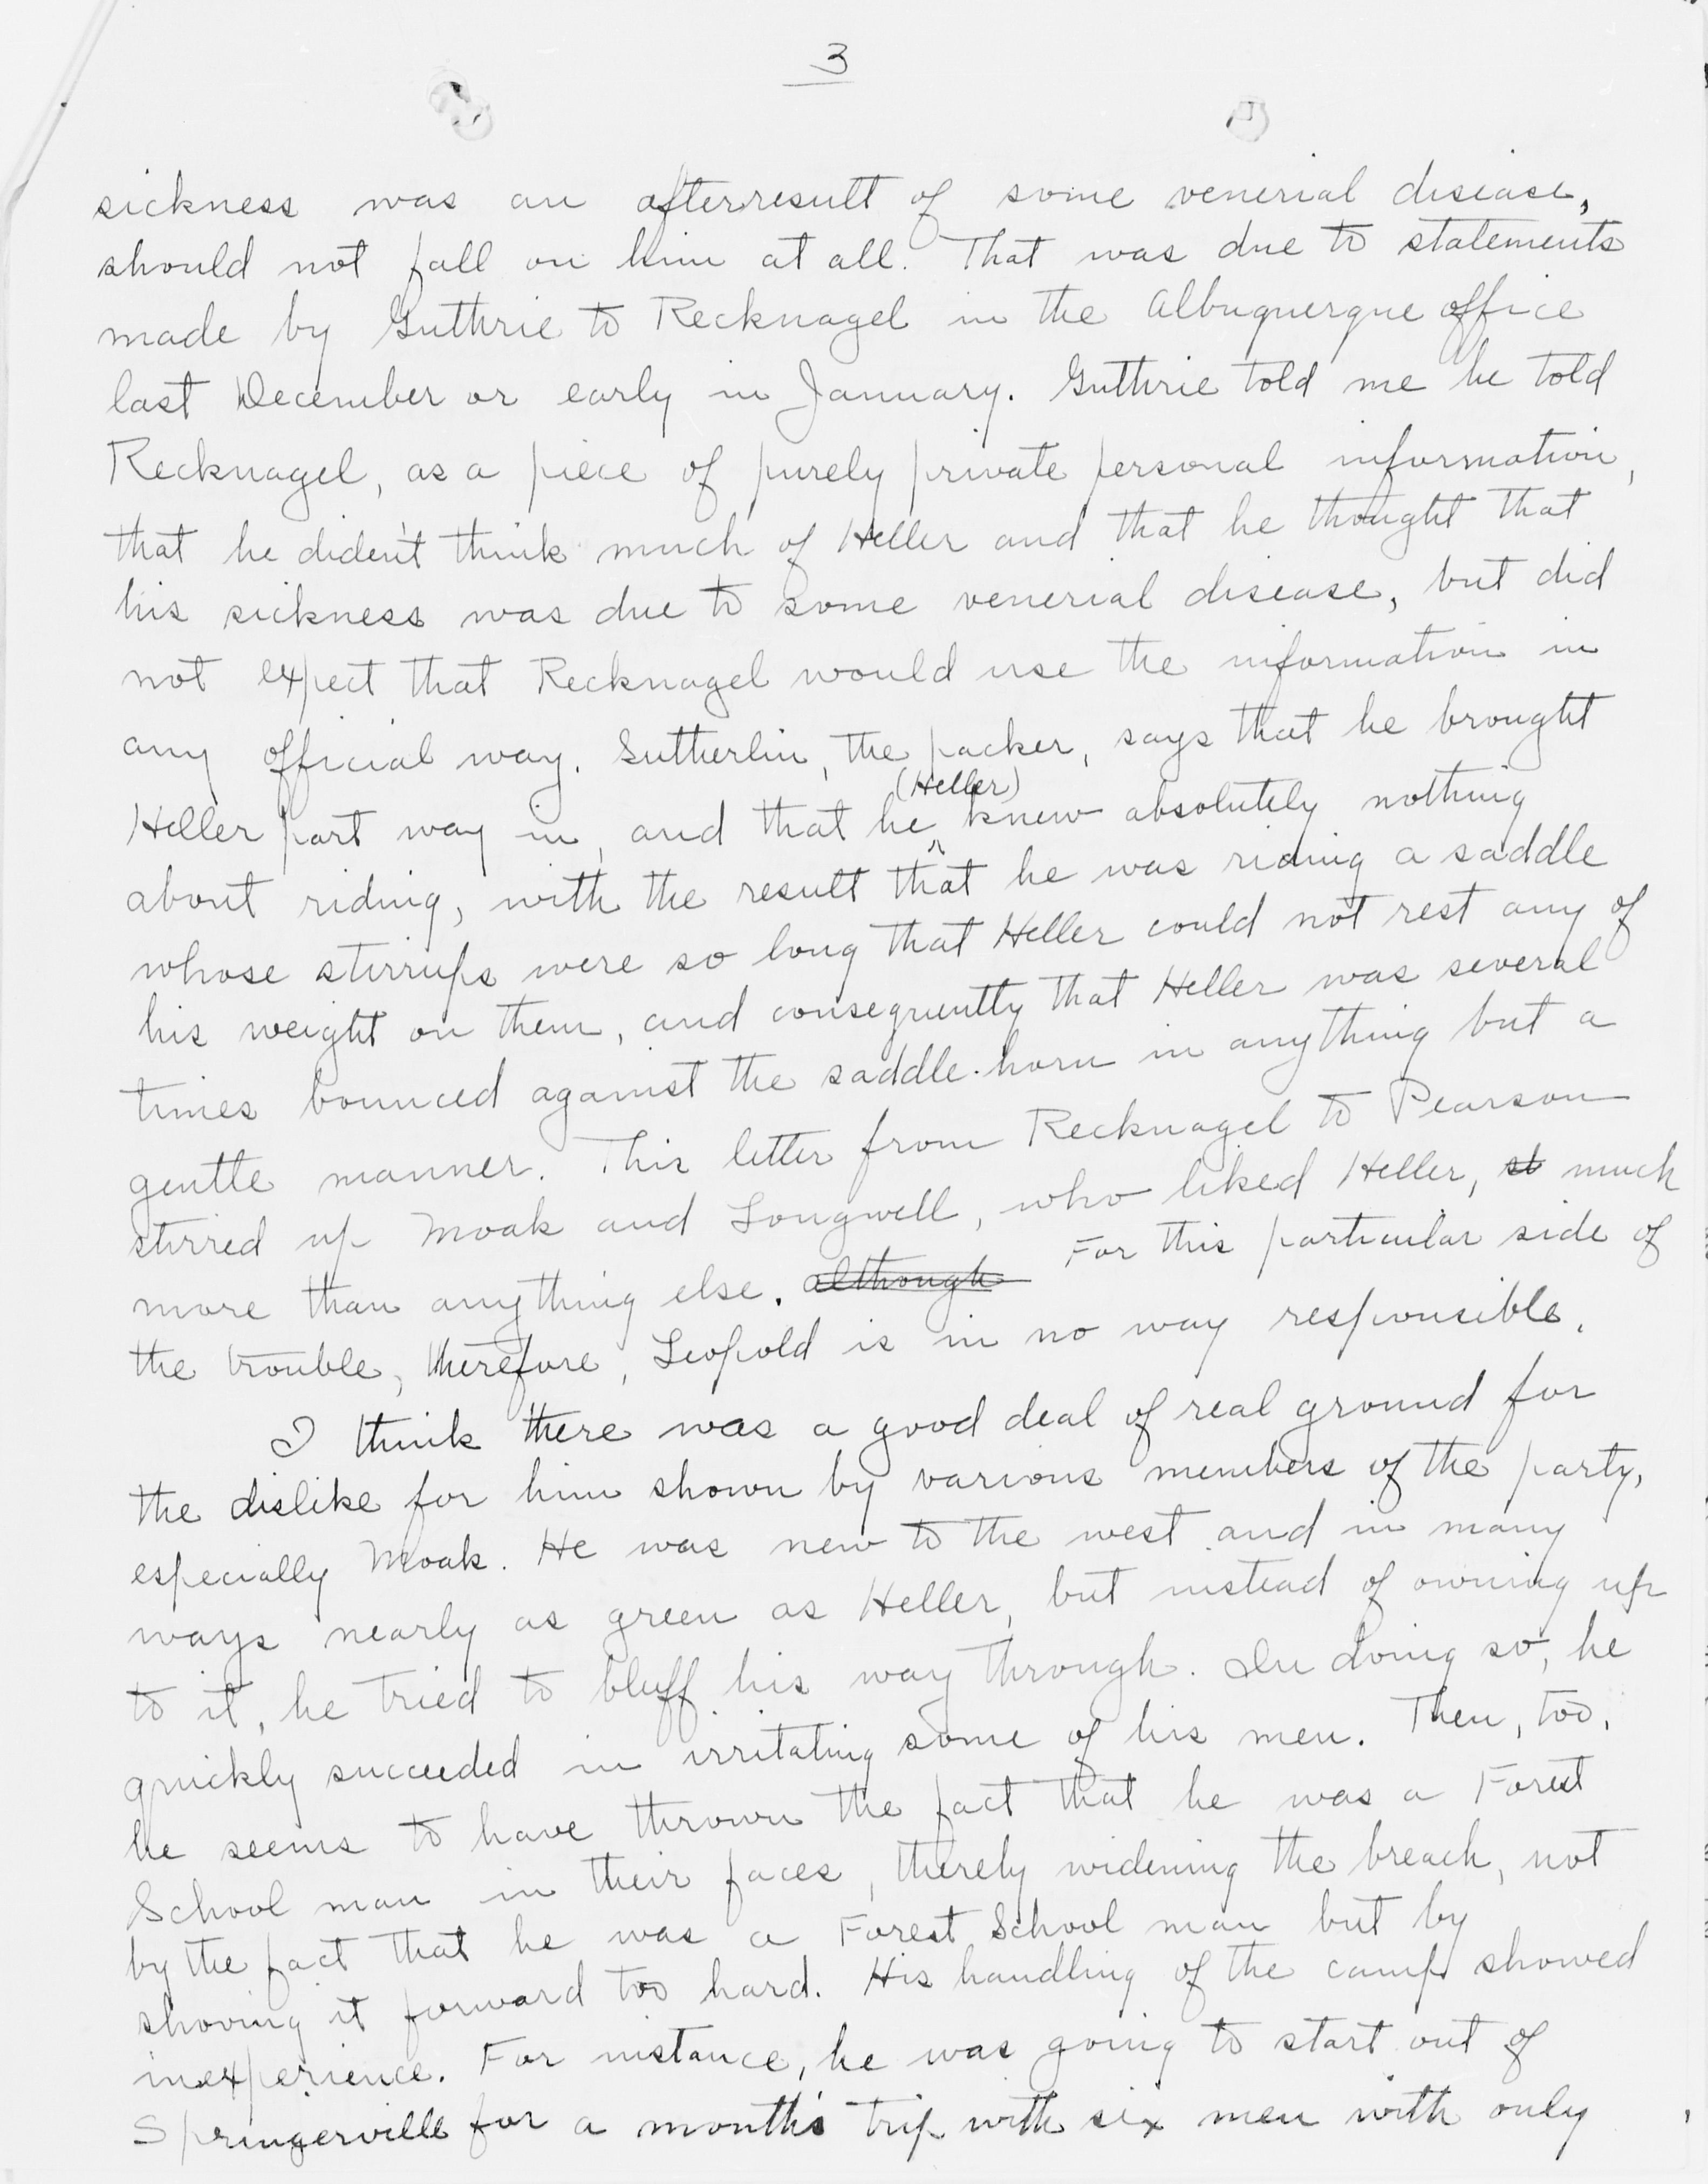 3
sickness was an afterresult of some venerial disease,
should not fall on him at all. That was due to statements
made by Guthrie to Recknagel in the Albuquerque office
last December or early in January. Guthrie told me he told
Recknagel, as a piece of purely private personal information,
that he diden't think much of Heller and that he thought that
his sickness was due to some venerial disease, but did
not expect that Recknagel would use the information in
any official way. Sutherlin, the packer, says that he brought
Heller part way in, and that he (Heller) knew absolutely nothing
about riding, with the result that he was riding a saddle
whose stirrups were so long that Heller could not rest any of
his weight on them, and consequently that Heller was several
times bounced against the saddle-horn in anything but a
gentle manner. This letter from Recknagel to Pearson
stirred up Moak and Longwell, who liked Heller, st much
more than anything else. although For this particular side of
the trouble, therefore, Leopold is in no way responsible.
I think there was a good deal of real ground for
the dislike for him shown by various members of the party,
especially Moak. He was new to the west and in many
ways nearly as green as Heller, but instead of owning up
to it, he tried to bluff his way through. In doing so, he
quickly succeeded in irritating some of his men. Then, too,
he seems to have thrown the fact that he was a Forest
School man in their faces, therely widening the breach, not
by the fact that he was a Forest School man but by
shoving it forward too hard. His handling of the camp showed
inexperience. For instance, he was going to start out of
Springerville for a month's trip with six men with only